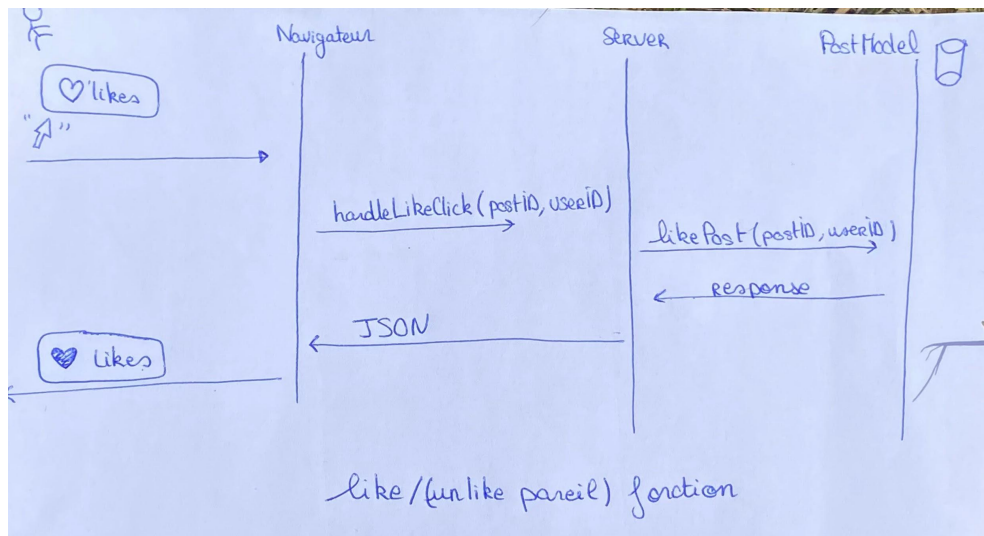 Navigateur
Server
PostModel
likes
handleLikeClick(postID, userID)
likePost(postID, userID)
response
JSON
likes
like/(unlike pareil) fonction